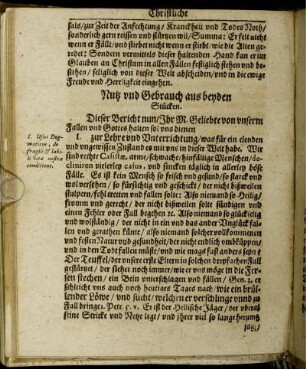 Christliche
fals/zur Zeit der Anfechtung/Kranckheit vnd Todes Noth/
sonderlich gern reissen vnd stürtzen wil/Summa: Er felt nicht
wenn er Fälle/vnd stirbet nicht wenn er stirbt/wie die Alten ge-
redet: Sondern vermittels dieser haltenden Hand kan er im
Glauben an Christum in allen Fällen festiglich stehen vnd be-
stehen/seliglich von dieser Welt abscheiden/vnd in die ewige
Freude vnd Herrligkeit eingehen.
Nutz vnd Gebrauch aus beyden
Stücken.
Dieser Bericht nun/Ihr M. Geliebte von vnserm
Fallen vnd Gottes halten sol vns dienen
1. Usus
1. zur Lehre vnd Vnterrichtung/was für ein elender
vnd vngewissen Zustand es mit vns in dieser Welt habe. Wir
sind rechte arme/schwache/hinfällige Menschen/
vnd stricken täglich in allerley böse
Fälle. Es ist kein Mensch so frisch vnd gesund/so starck vnd
wol /so fürsichtig vnd geschickt/der nicht bißweilen
stolpern/fehltretten vnd fallen solte: Also niemand so Heilig/
fromm vnd gerecht/der nicht bißweilen solte sündigen vnd
einen Fehler oder Fall begehen ꝛc. Also niemand so glückselig
vnd wolständig/der nicht in ein vnd das ander Vnglück fal-
len vnd gerathen könte/also niemand solcher vollkommenen
vnd festen Natur vnd gesundheit/der nicht endlich vmbküppen/
vnd in den Todt fallen müste/
Der Teuffel/der vnsere erste Eltern in solchen Fall
gestürtzet/der stehet noch immer/wie er vns möge in die Fer-
sen stechen/ein Bein vnterschlagen vnd fällen/Gen. 3. er
schleicht vns auch noch heutiges Tages nach/wie ein brül-
lender Löwe/vnd sucht/welchen er verschlinge vnnd zu
Fall bringe 1. Petr. 5. v. Er ist der Hellische Jäger/der
seine Stricke vnd Netze legt/vnd jhrer viel so lange herumb
jag/